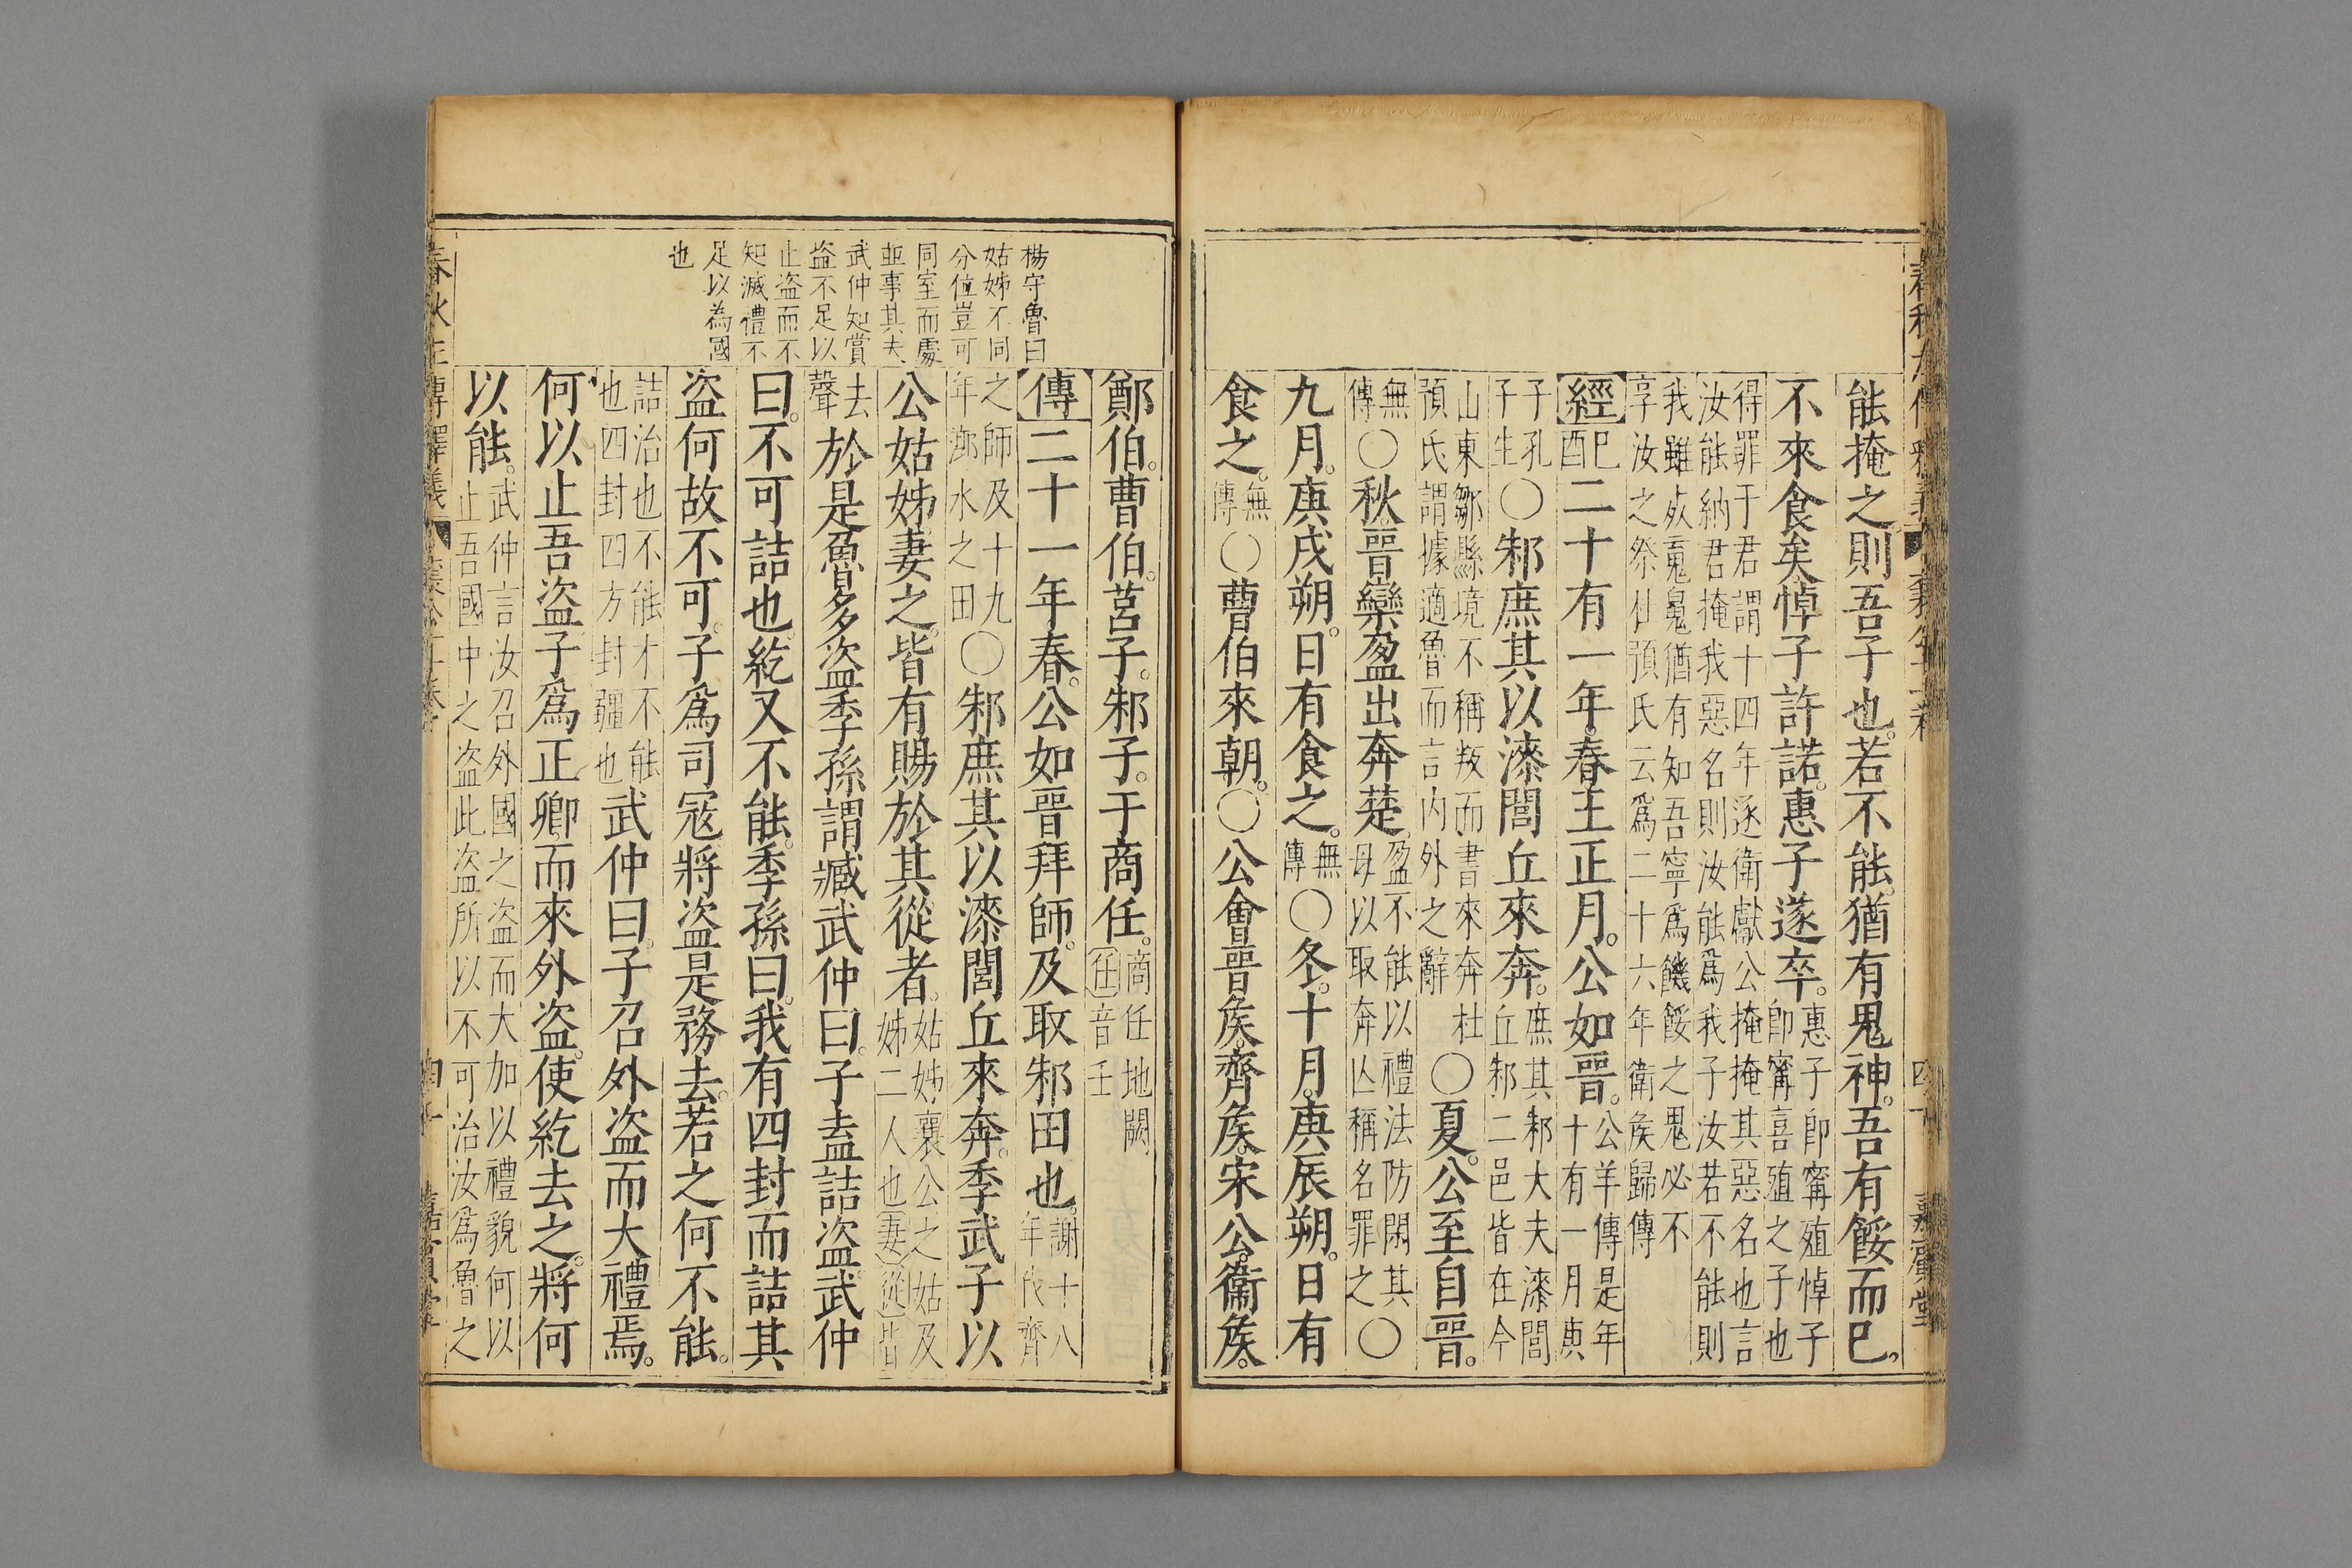 能掩之則吾子也。若不能。猶有鬼神。吾有餒而已。
不來食矣。悼子許諾。惠子遂卒。惠子即甯殖悼子即甯喜殖之子也
得罪于君謂十四年逐衛獻公掩掩其惡名也言汝能納君掩我惡名則汝能爲我子汝若不能則
我雖死爲鬼猶有知吾寧爲饑餒之鬼必不享汝之祭杜預氏云爲二十六年衛侯歸傳
經己酉二十有一年。春王正月。公如晉。公羊傳是年十有一月庚
子孔子生〇邾庶其以漆閭丘來奔。庶其邾大夫漆閭丘邾二邑皆在今
山東鄒縣境不稱叛而書來奔杜預氏謂據適魯而言内外之辭〇夏。公至自晉。
無傳〇秋。晉欒盈出奔楚。盈不能以禮法防閑其母以取奔亾稱名罪之〇
九月。庚戌朔。日有食之。無傳〇冬。十月。庚辰朔。日有
食之。無傳〇曹伯來朝。〇公會晉侯。齊侯。宋公。衞侯。
鄭伯。曹伯。莒子。邾子。于商任。商任地闕任音壬
傳二十一年春。公如晉拜師。及取邾田也。謝十八年伐齊
之師及十九年漷水之田〇邾庶其以漆閭丘來奔。季武子以
公姑姊妻之。皆有賜於其從者。姑姊襄公之姑及姊二人也妻從皆
去聲於是魯多盜季孫謂臧武仲曰。子盍詰盜。武仲
曰。不可詰也。紇又不能。季孫曰。我有四封而詰其
盜何故不可。子爲司寇將盜是務去。若之何不能。
詰治也不能才不能也四封四方封疆也武仲曰。子召外盜而大禮焉。
何以止吾盜子爲正卿而來外盜。使紇去之。將何
以能。武仲言汝召外國之盜而大加以禮貌何以止吾國中之盜此盜所以不可治汝爲魯之
楊守魯曰
姑姊不同
分位豈可
同室而處
並事其夫
武仲知賞
盜不足以
止盜而不
知滅禮不
足以為國
也